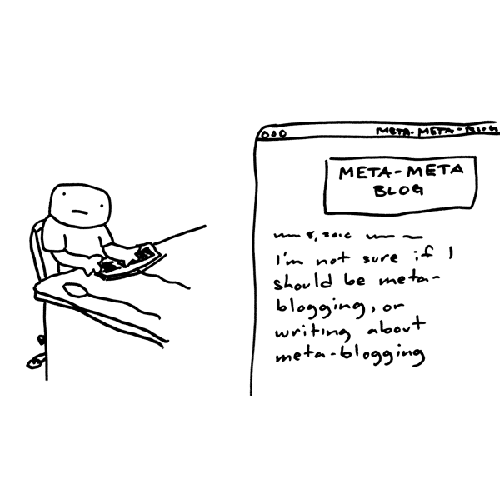 META-META-BLOG
META-META
BLOG
I'm not sure if I
should be meta-
blogging, or
writing about
meta-blogging